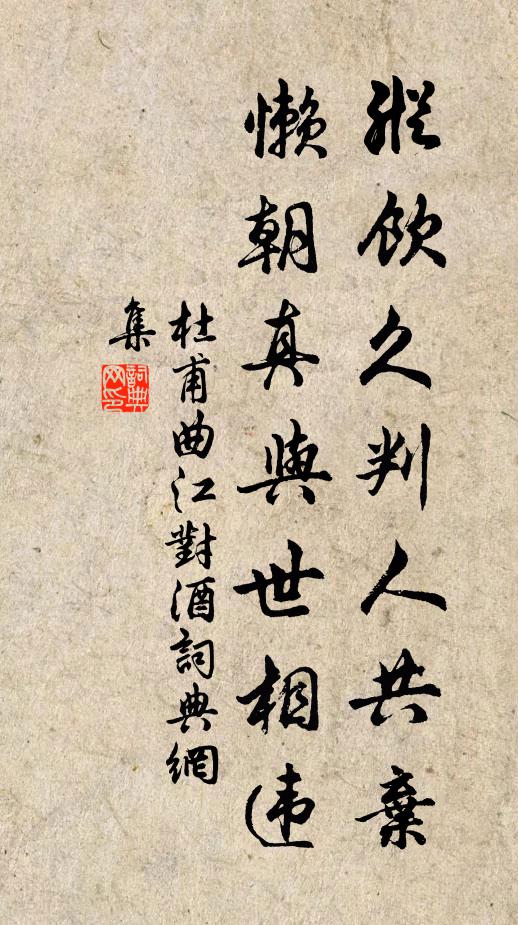 縱飲久判人共棄
懶朝真與世相违
杜甫曲江對酒詞典網
集
詞典
网印